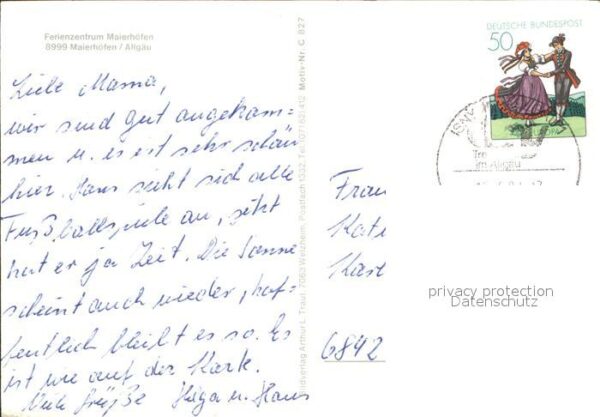 Ferienzentrum Maierhöfen
8999 Maierhöfen / Allgäu
Liebe Mama,
wir sind gut angekom-
men u. es ist sehr schön
hier. Hans sieht sich alle
Fußballspiele an, jetzt
hat er ja Zeit. Die Sonne
scheint auch wieder, hof-
fentlich bleibt es so. Es
ist wie auf der Karte.
Viele Grüße Helga u. Hans
Motiv-Nr. C 827
DEUTSCHE BUNDESPOST
50
im Allgäu
Frau
Kat
Karl
6842
privacy protection
Datenschutz